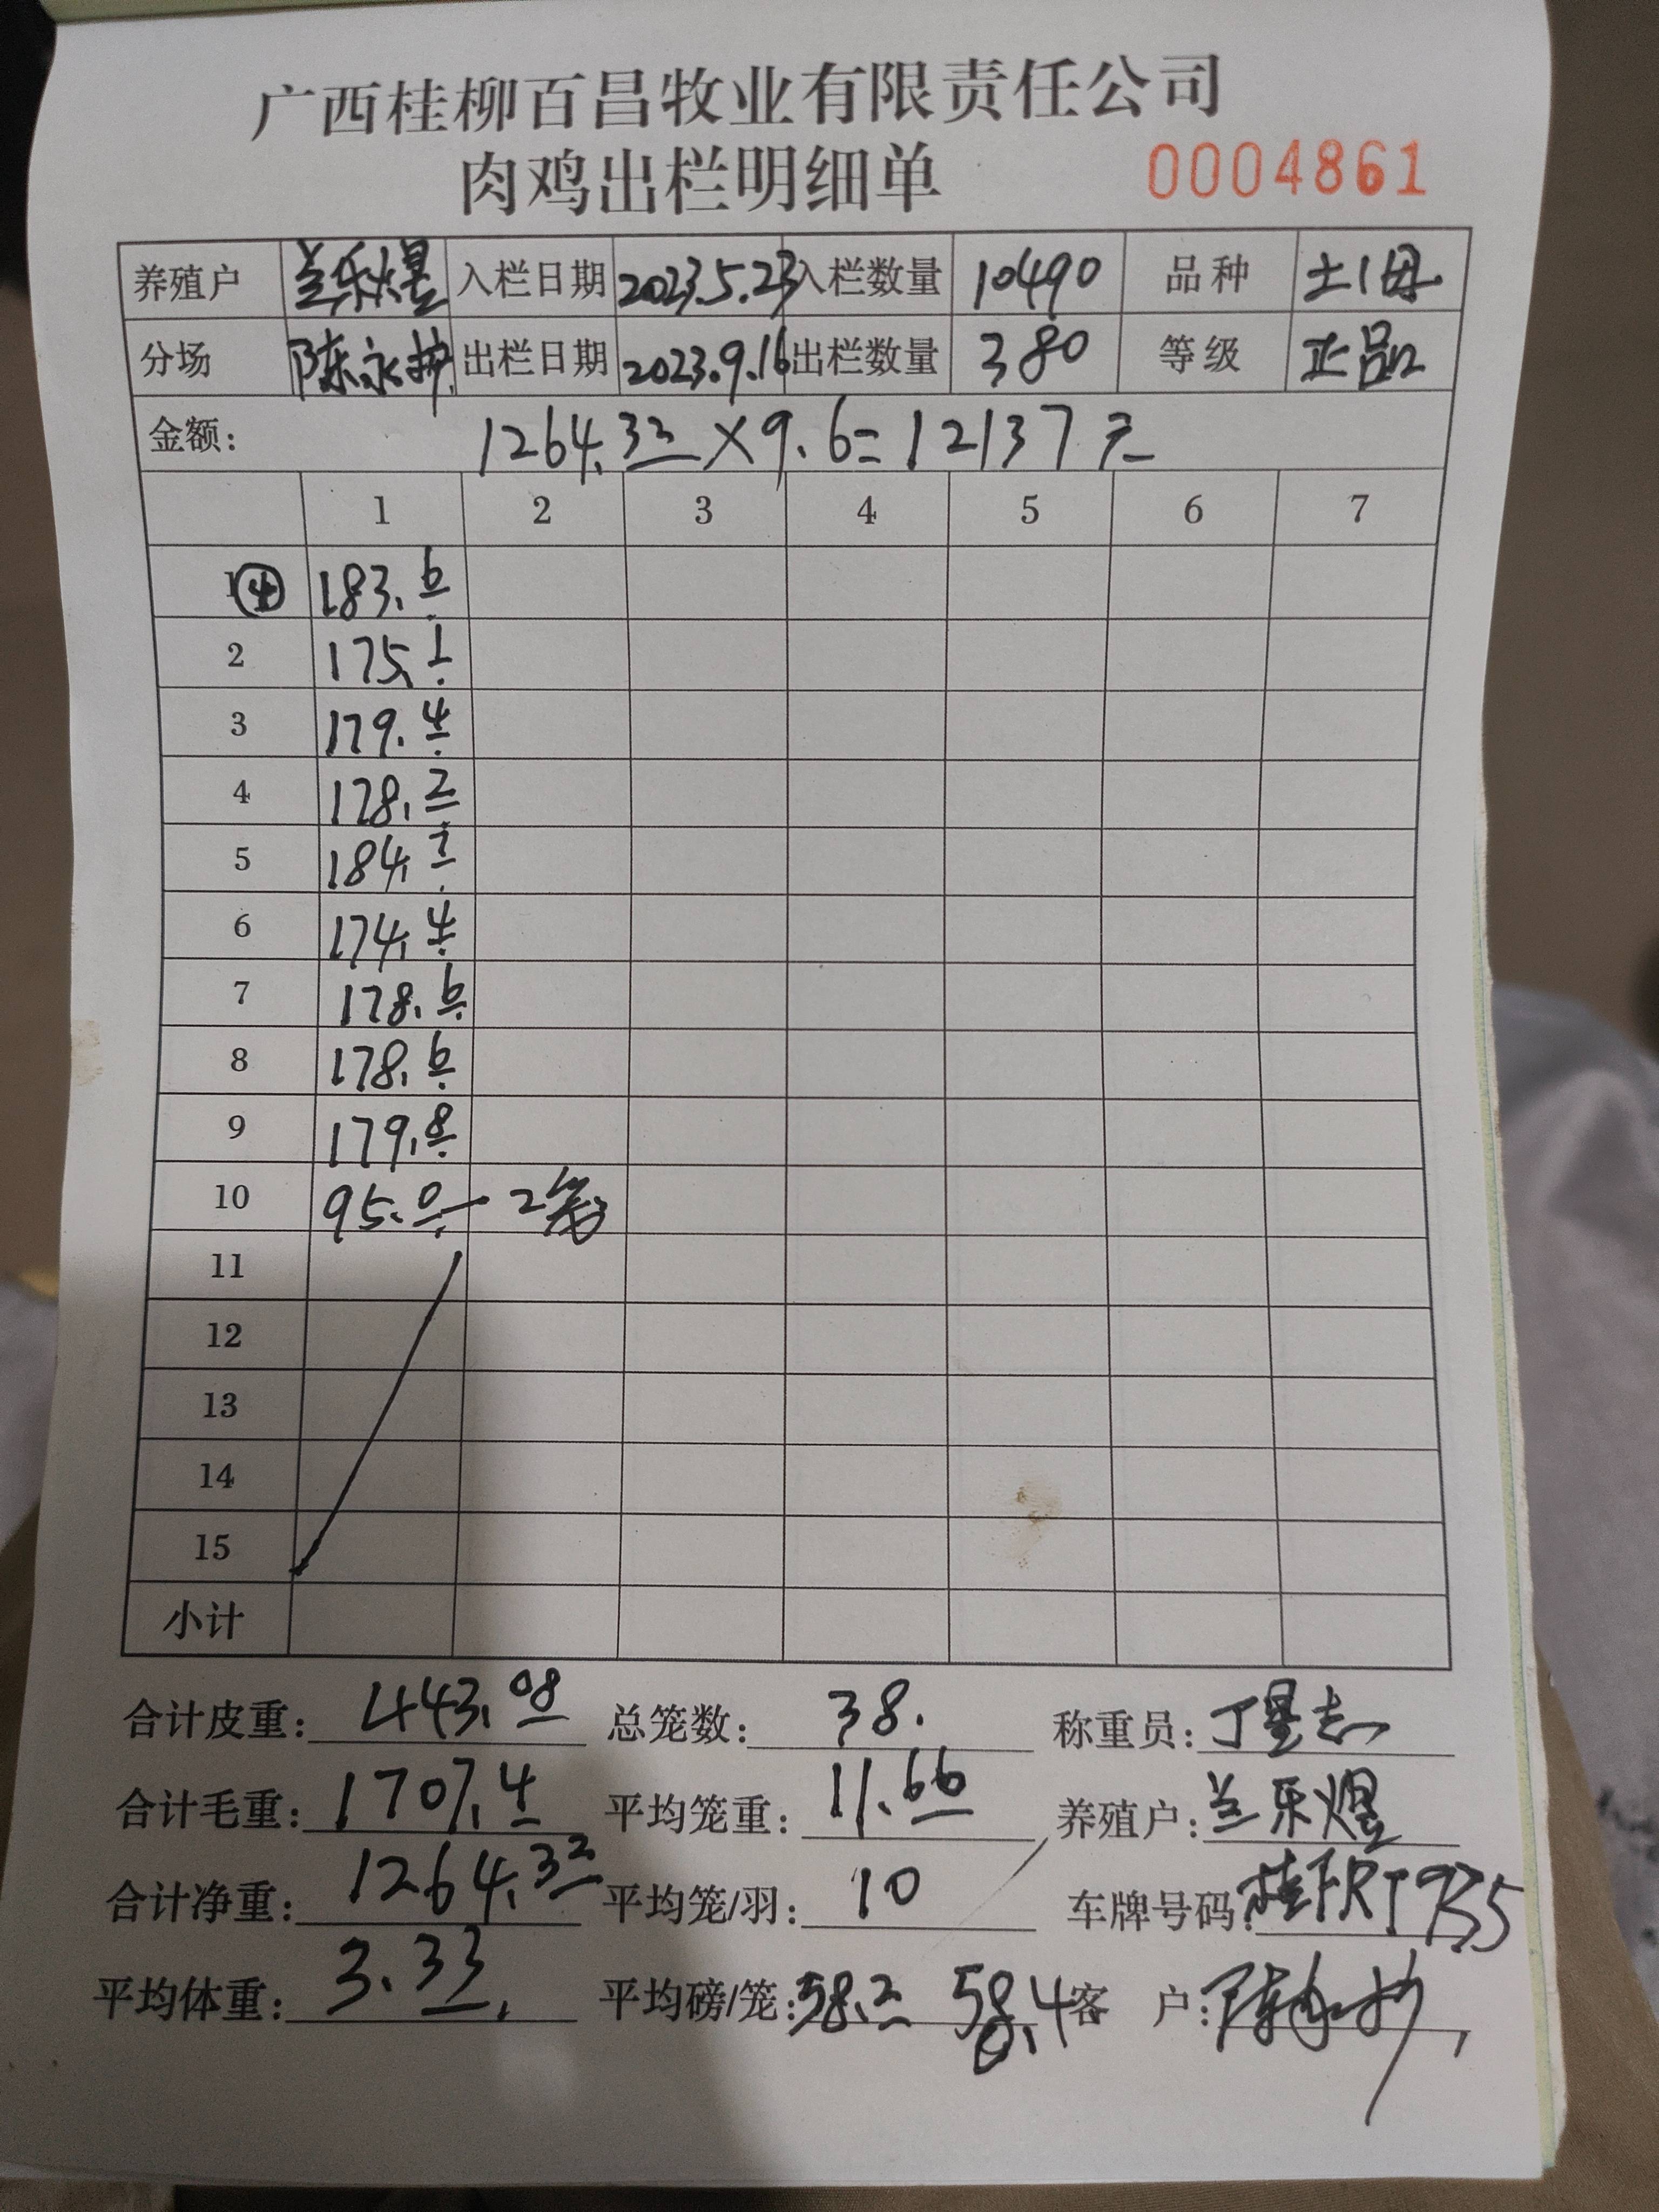 广西桂柳百昌牧业有限责任公司
肉鸡出栏明细单 0004861
养殖户 兰乐煌 入栏日期 2023.5.23 入栏数量 10490 品种 土1母
分场 陈永护 出栏日期 2023.9.16 出栏数量 380 等级 正品
金额: 1264.32×9.6=12137元
1 2 3 4 5 6 7
1④ 183.6
2 175.1
3 179.4
4 178.2
5 184.7
6 174.4
7 178.6
8 178.6
9 179.8
10 95.0—2笼
11
12
13
14
15
小计
合计皮重: 443.08 总笼数: 38. 称重员: 丁星志
合计毛重: 1707.4 平均笼重: 11.66 养殖户: 兰乐煌
合计净重: 1264.32 平均笼/羽: 10 车牌号码:
平均体重: 3.33 平均磅/笼: 58.2 58.4 客 户: 陈永护